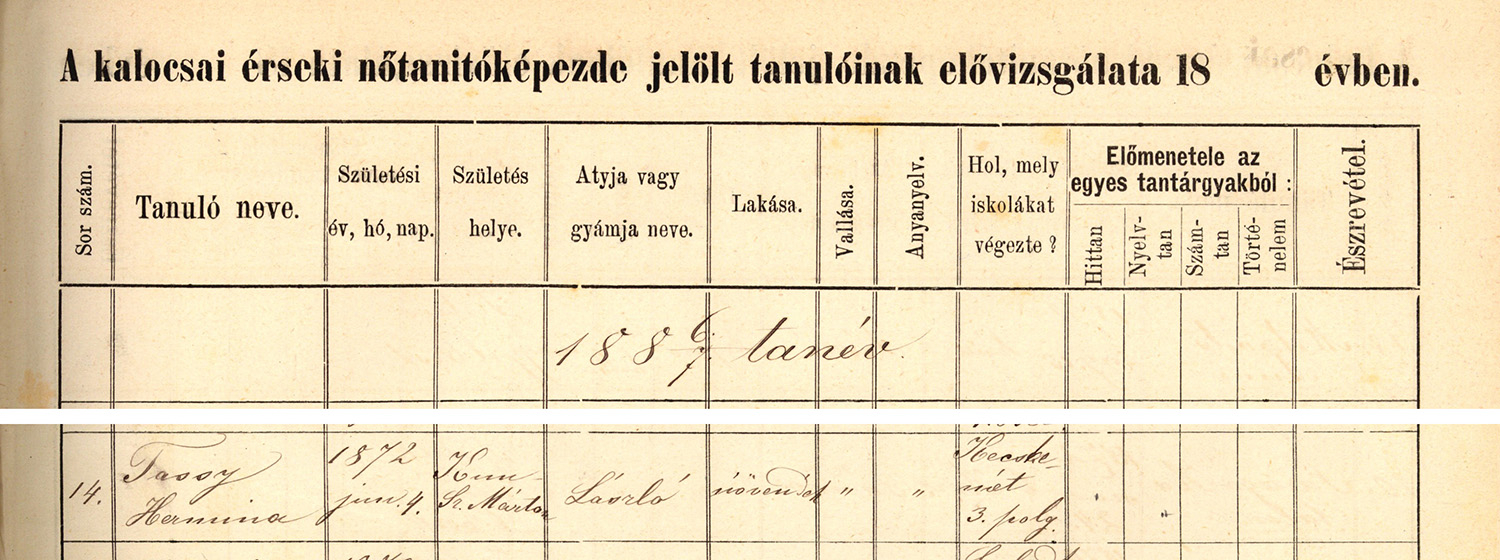 A kalocsai érseki nőtanitóképezde jelölt tanulóinak elővizsgálata 18 évben.
Sor szám.
Tanuló neve.
Születési
év, hó, nap.
Születés
helye.
Atyja vagy
gyámja neve.
Lakása.
Vallása.
Anyanyelv.
Hol, mely
iskolákat
végezte ?
Előmenetele az
egyes tantárgyakból :
Hittan
Nyelv-
tan
Szám-
tan
Törté-
nelem
Észrevétel.
1886/7 tanév.
14.
Tassy
Hermina
1872
jun. 4.
Kun-
Sz. Márton
László
növendék
"
"
Kecske-
mét
3. polg.